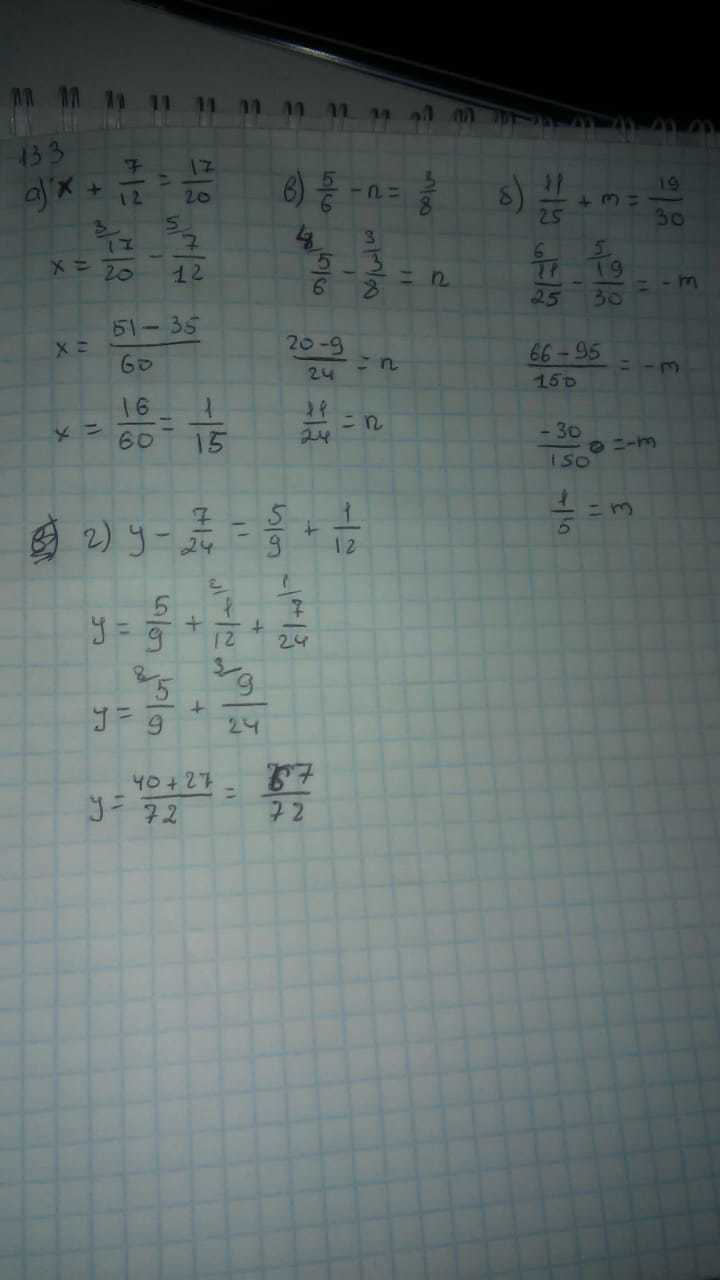 133
а) x + 7/12 = 17/20
x = 3/ 17/20 - 5/ 7/12
x = (51 - 35)/60
x = 16/60 = 1/15
в) 5/6 - n = 3/8
4/ 5/6 - 3/ 3/8 = n
(20 - 9)/24 = n
11/24 = n
б) 11/25 + m = 19/30
6/ 11/25 - 5/ 19/30 = -m
(66 - 95)/150 = -m
-30/150 = -m
1/5 = m
г) y - 7/24 = 5/9 + 1/12
y = 5/9 + 2/ 1/12 + 1/ 7/24
y = 8/ 5/9 + 3/ 9/24
y = (40 + 27)/72 = 67/72